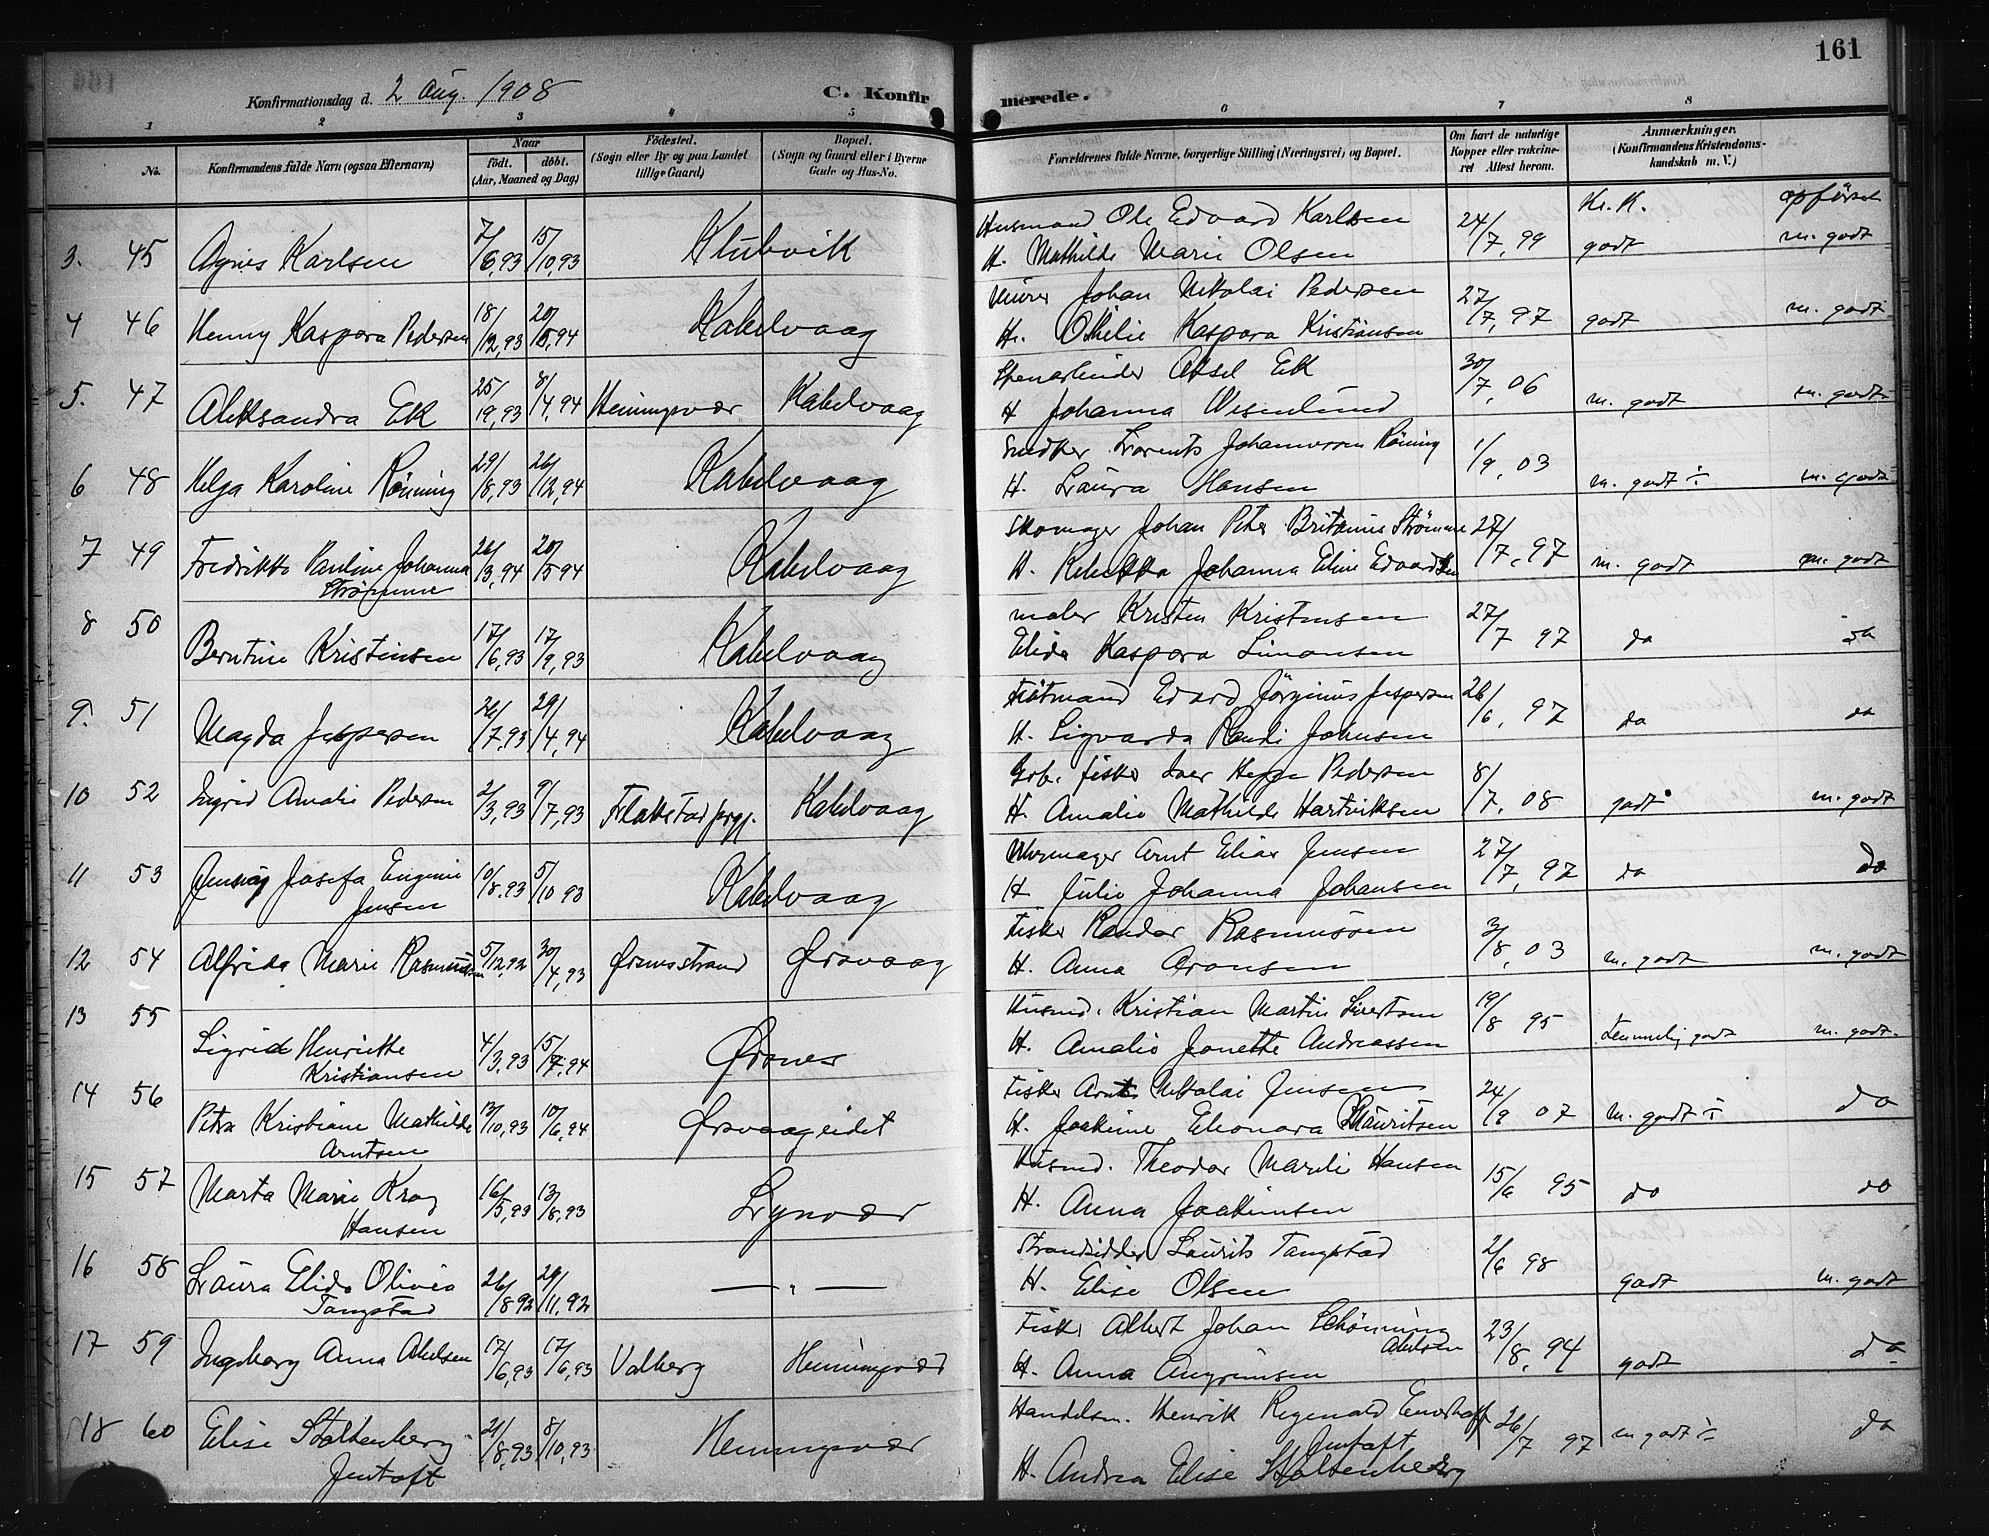 161
Konfirmationsdag d. 2 Aug. 1908
C. Konfir merede.
1 2 3 4 5 6 7 8
No.
Konfirmandens fulde Navn (ogsaa Efternavn)
Naar
født. døbt.
(Aar, Maaned og Dag)
Fødested.
(Sogn eller By og paa Landet
tillige Gaard)
Bopæl.
(Sogn og Gaard eller i Byerne
Gade og Hus-No.
Forældrenes fulde Navne, borgerlige Stilling (Næringsvei) og Bopæl.
Om havt de naturlige
Kopper eller vakcine-
ret Attest herom.
Anmærkninger.
(Konfirmandens Kristendoms-
kundskab m. V.)
Kr. K. opførsel
3. 45 Agnes Karlsen 7/6,93 15/10,93 Klubvik Husmand Ole Edvard Karlsen 24/7, 99 godt m. godt
H. Mathilde Marie Olsen
4 46 Henny Kaspara Pedersen 18/12,93 Kabelvaag Murer Johan Nikolai Pedersen 27/7, 97 godt m. godt
H. Othilie Kaspara Kristiansen
5. 47 Aleksandra Ek 8/4,94 Henningsvær Kabelvaag Aksel Ek 30/7, 06 m. godt m. godt
H Johanna
6 48 Helga Karoline Rønning 29/8,93 26/12,94 Kabelvaag Snedker Lorents Johannessen Röning 1/9, 03 m. godt ÷ m. godt
H. Laura Hansen
7 49 Fredrikke Pauline Johanna 20/5 94 Kabelvaag Skomager Johan Peter Strömme 27/7, 97 m. godt m. godt
Strømme
H. Rebekka Johanna Eline Edvardsen
8 50 Berntine Kristensen 17/6,93 17/9,93 Kabelvaag maler Kristen Kristensen 27/7 97 do do
Elida Kaspara Simonsen
9. 51 Magda Jespersen 26/7,93 29/4,94 Kabelvaag Edvard Jörginus Jespersen 26/6, 97 do do
H. Sigvarda Randi Johnsen
10 52 Ingrid Amalie Pedersen 2/3,93 9/7,93 Kabelvaag fisker Iver Pedersen 8/7, 08 godt m. godt
H. Amalie Mathilde Hartviksen
11 53 Josefa Eugenie 10/8.93 5/10 93 Kabelvaag Urmager Arnt Elias Jensen 27/7, 97 do do
Jensen
H Julie Johanna Johansen
12 54 Alfrida Marie Rasmussen 5/12,92 30/4,93 Ørsnesstrand Ørsvaag Fisker Randor Rasmussen 3/8, 03 m. godt m. godt
H. Anna Aronsen
13 55 Sigrid Henriette 4/3,93 Ørsnes Husmd. Kristian Martin Sivertsen 19/8 95 temmelig godt m. godt.
Kristiansen
H. Amalie Jonette Andreassen
14 56 Petra Kristiane Mathilde 13/10,93 10/6,94 Ørsvaageidet Fisker Arnt Nikolai Jensen 24/9 07 m. godt ÷ do
Arntsen
H. Joakime Eleonora Mauritsen
15 57 Marta Marie Krog 16/5,93 13/8,93 Lyngvær Husmd. Theodor Hansen 15/6 95 do do
Hansen
H. Anna Joakimsen
16 58 Laura Elida Olivia 26/8 92 29/11,92 — " — Strandsidder Laurits Tangstad 2/6 98 godt m. godt
Tangstad
H. Elise Olsen
17 59 Ingeborg Anna Abelsen 17/6,93 Valberg Henningsvær Fisker Albert Johan Schönning 23/8, 94 godt do
Abelsen
H. Anna Angrimsen
18 60 Elise Stoltenberg 21/8,93 8/10,93 Henningsvær Handelsm. Henrik 26/7 97 m godt ÷ do
Jentoft
Jentoft
H. Andrea Elise Stoltenberg